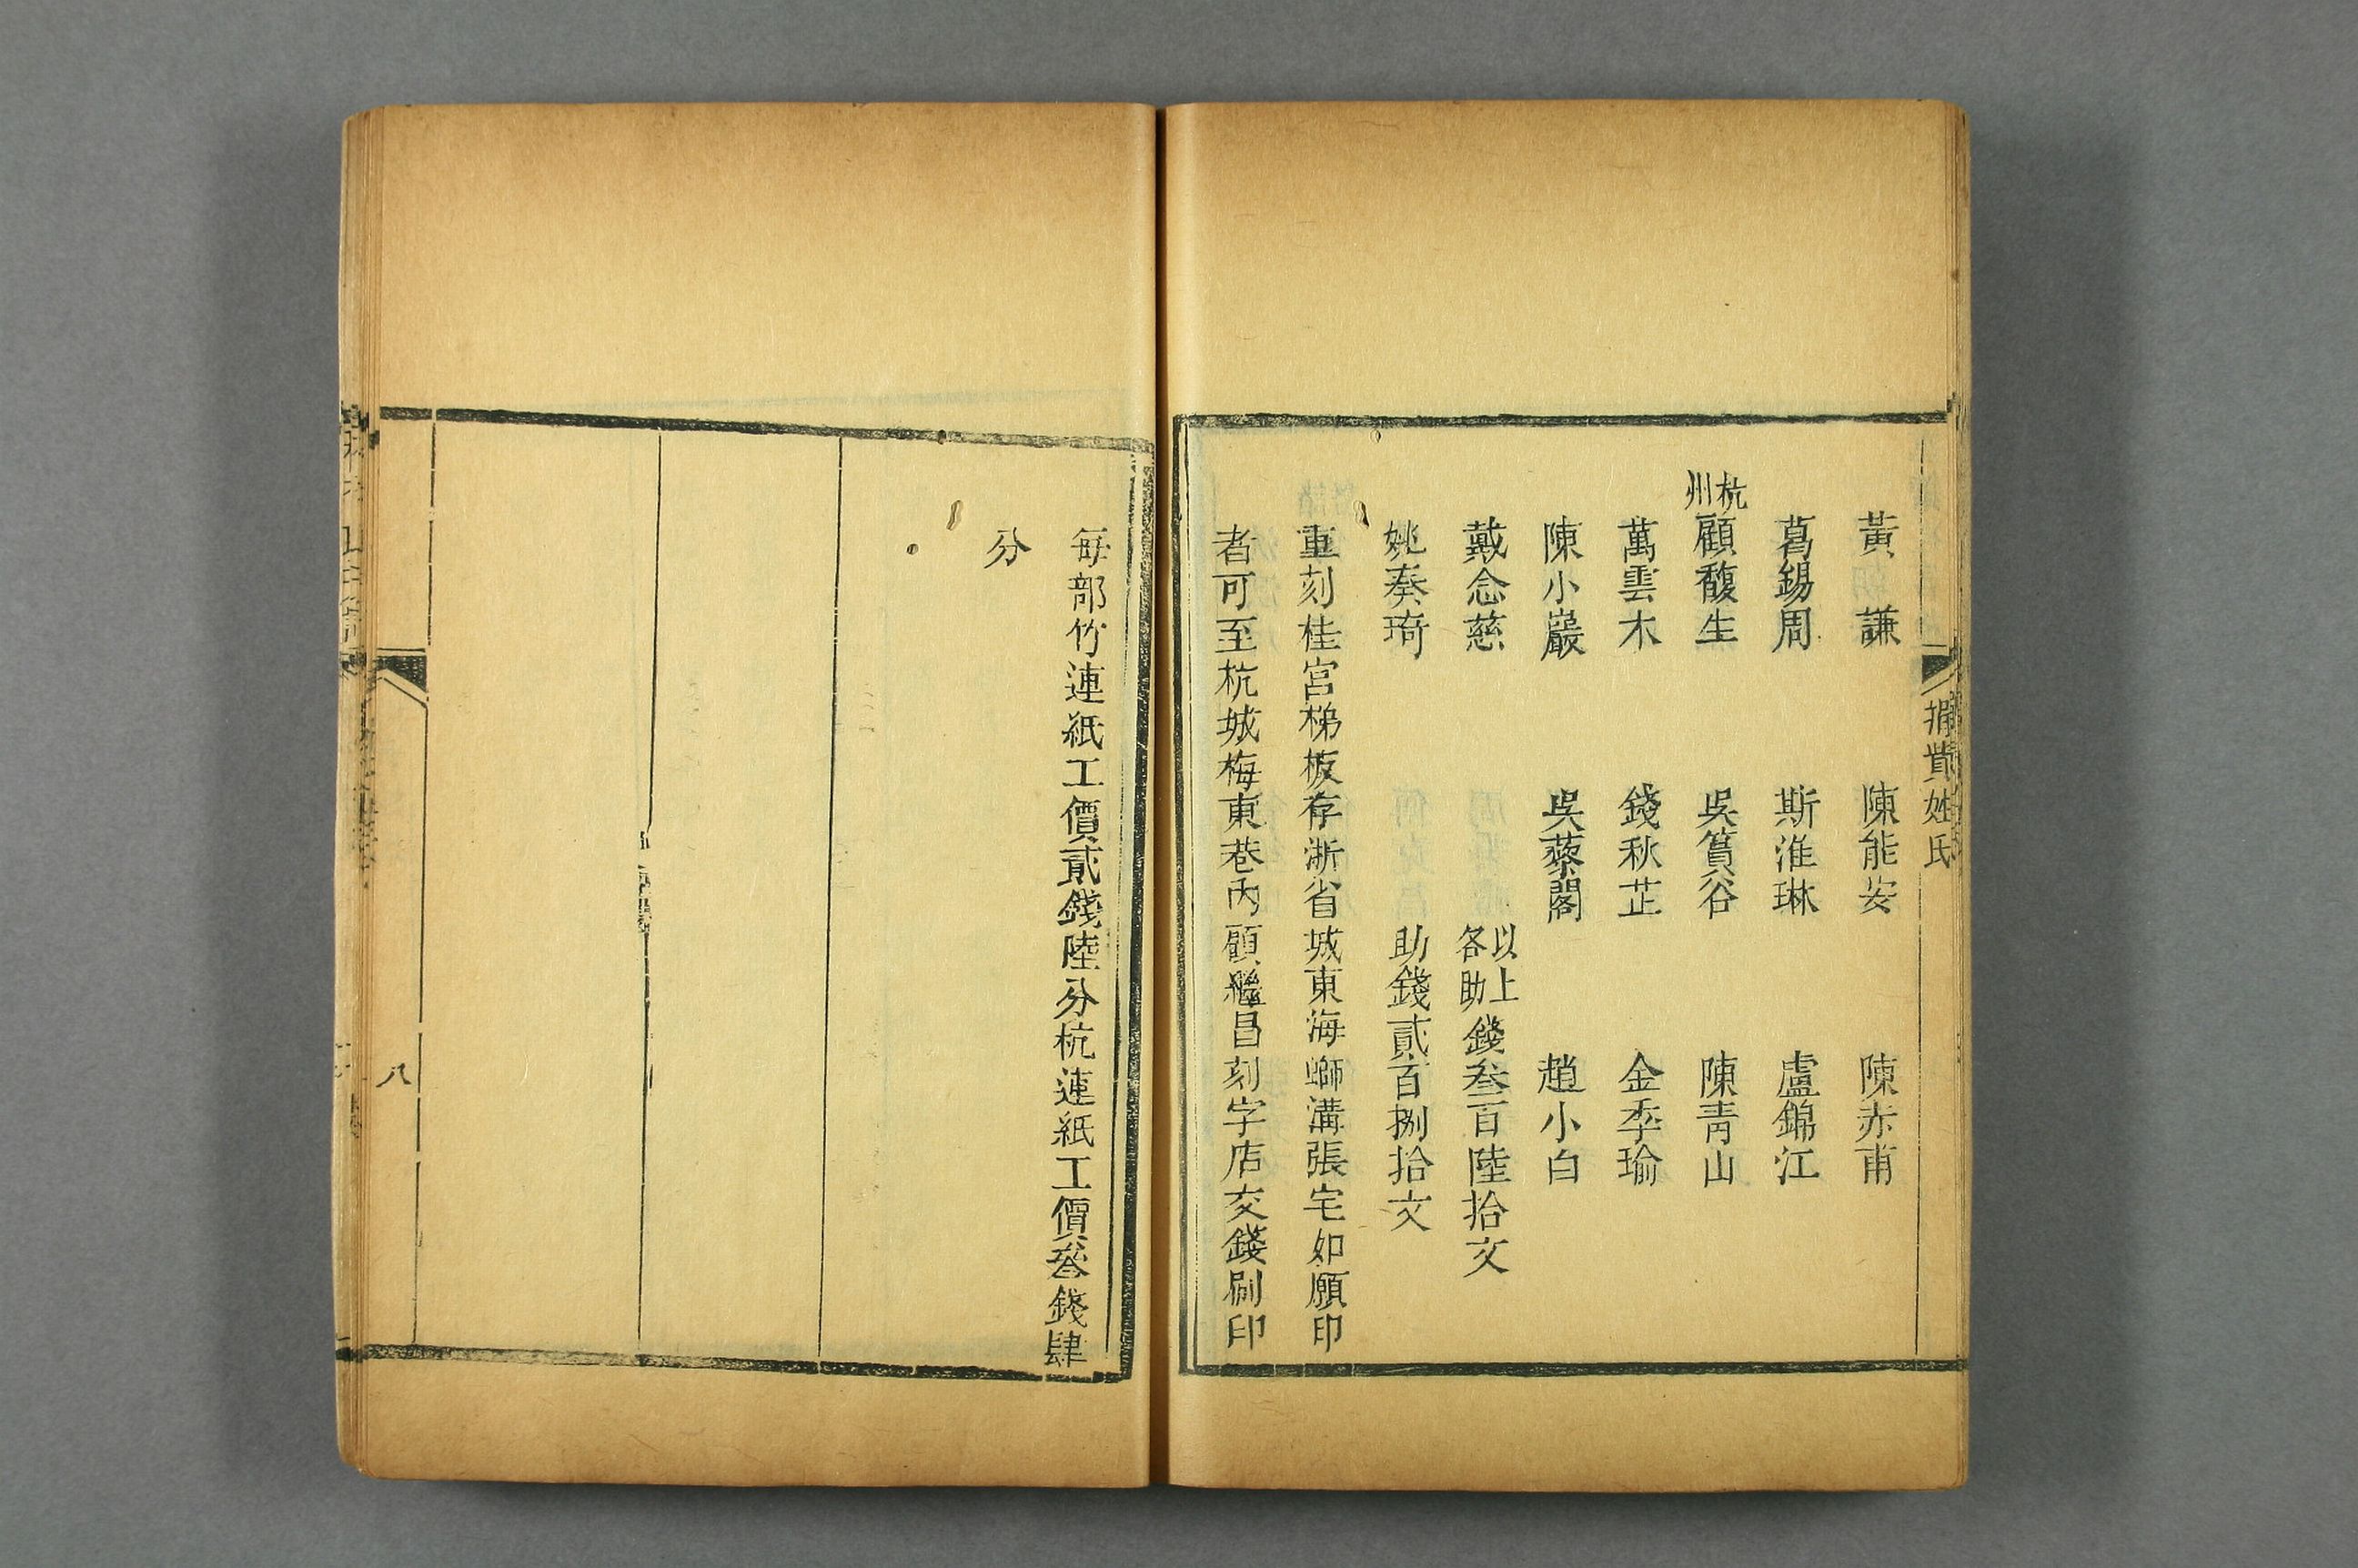 捐貲姓氏
黃謙 陳能安 陳赤甫
葛錫周 斯淮琳 盧錦江
杭州顧馥生 吳篔谷 陳青山
萬雲木 錢秋芷 金季瑜
陳小巖 吳藜閣 趙小白
戴念慈 以上各助錢叄百陸拾文
姚奏琦 助錢貳百捌拾文
重刻桂宮梯板存浙省城東海螄溝張宅如願印
者可至杭城梅東巷內顧繼昌刻字店交錢刷印
每部竹連紙工價貳錢陸分杭連紙工價叄錢肆
分
八